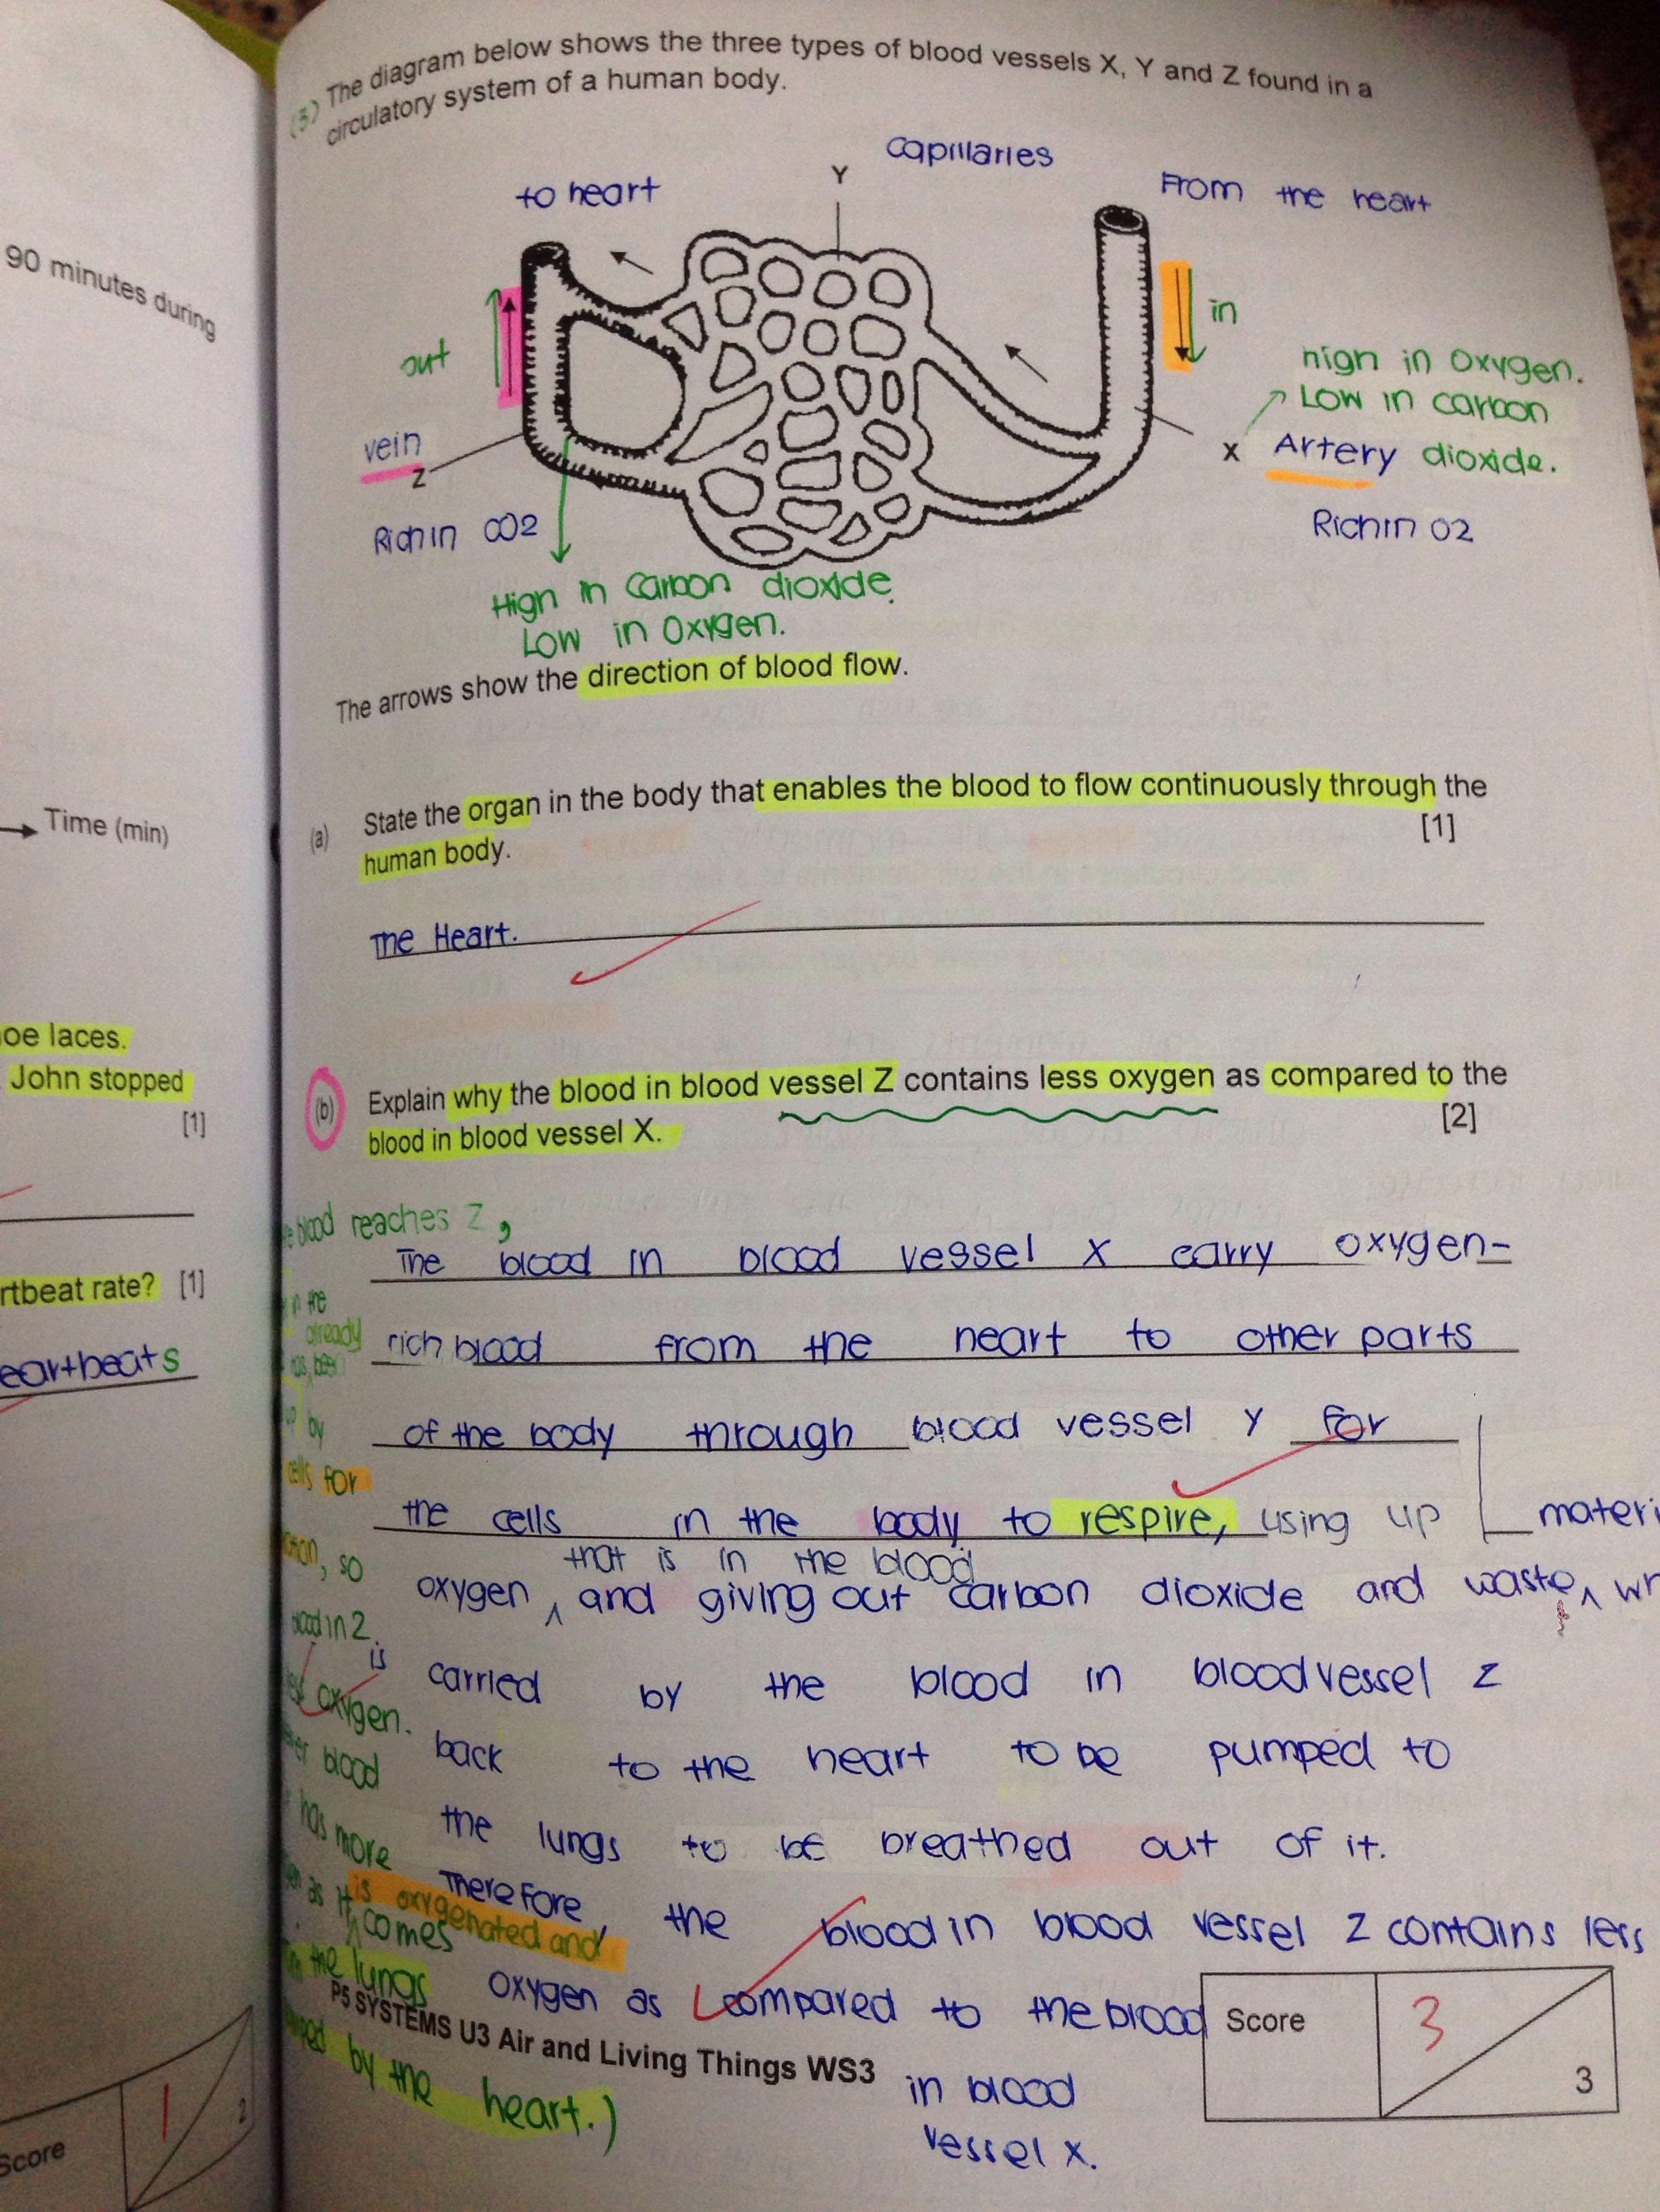 90 minutes during
Time (min)
oe laces.
John stopped
[1]
rtbeat rate? [1]
eartbeats
Score
1
2
(5) The diagram below shows the three types of blood vessels X, Y and Z found in a
circulatory system of a human body.
capillaries
Y
to heart
From the heart
out
in
high in oxygen.
Low in carbon
dioxide.
vein
Z
X
Artery
Rich in CO2
Rich in O2
High in carbon dioxide.
Low in oxygen.
The arrows show the direction of blood flow.
(a) State the organ in the body that enables the blood to flow continuously through the
human body. [1]
The Heart.
(b) Explain why the blood in blood vessel Z contains less oxygen as compared to the
blood in blood vessel X. [2]
The blood in blood vessel X carry oxygen-
rich blood from the heart to other parts
of the body through blood vessel Y for
the cells in the body to respire, using up
that is in the blood
oxygen ^ and giving out carbon dioxide and waste ^
materi
is carried by the blood in blood vessel Z
back to the heart to be pumped to
the lungs to be breathed out of it.
Therefore, the blood in blood vessel Z contains less
oxygen as compared to the blood
in blood
vessel X.
blood reaches Z,
in the
already
has been
up by
cells for
so
blood in Z
oxygen.
blood
has more
as it is oxygenated and
comes
the lungs
by the heart.)
P5 SYSTEMS U3 Air and Living Things WS3
Score
3
3